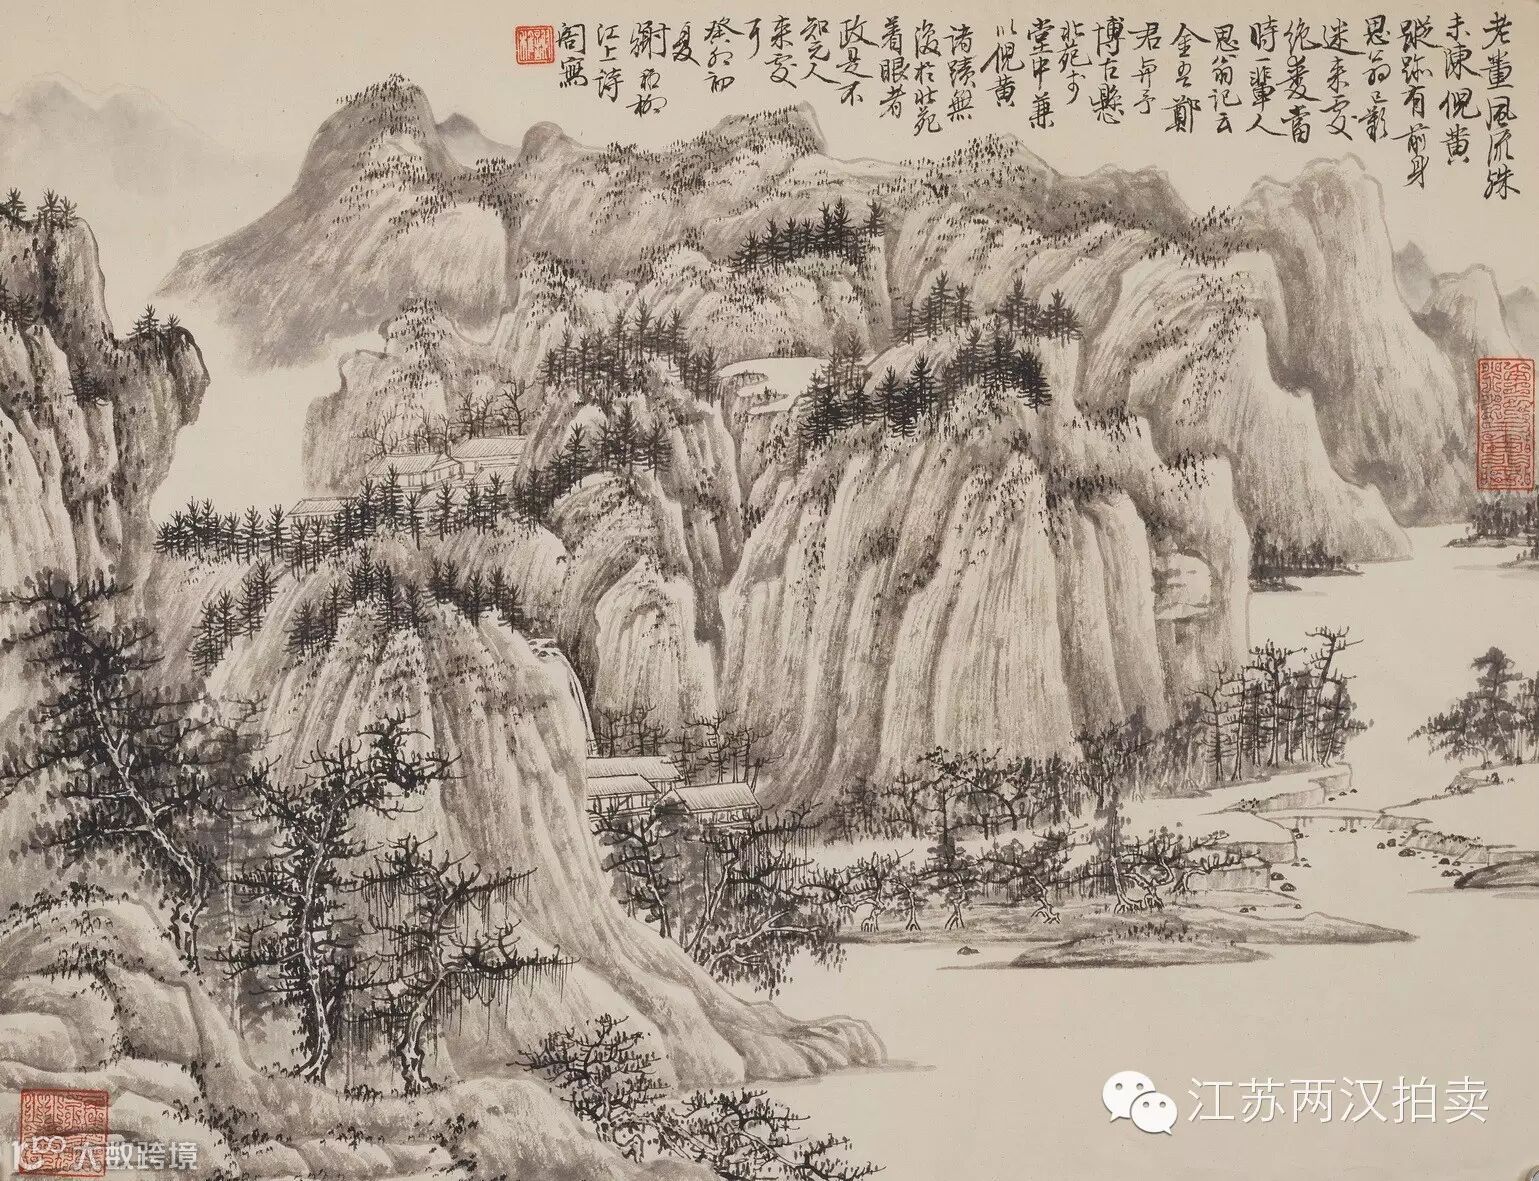 老畫風流殊
未陳倪黃
蹤跡有前身
思翁已歎
迷來處
絕羨當
時一輩人
思翁記云
金吾鄭
君與予
博古懸
北苑于
堂中兼
以倪黃
諸蹟無
復於北苑
着眼者
政是不
知元人
來處
耳
癸卯初
夏
謝稚柳
江上詩
閣寫
江苏两汉拍卖
大数跨境